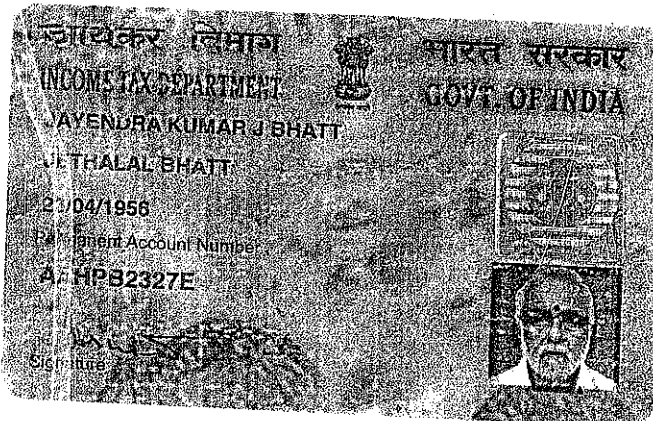 आयकर विभाग
भारत सरकार
INCOME TAX DEPARTMENT
GOVT. OF INDIA
JAYENDRA KUMAR J BHATT
JETHALAL BHATT
/04/1956
Permanent Account Number
HPB2327E
Signature